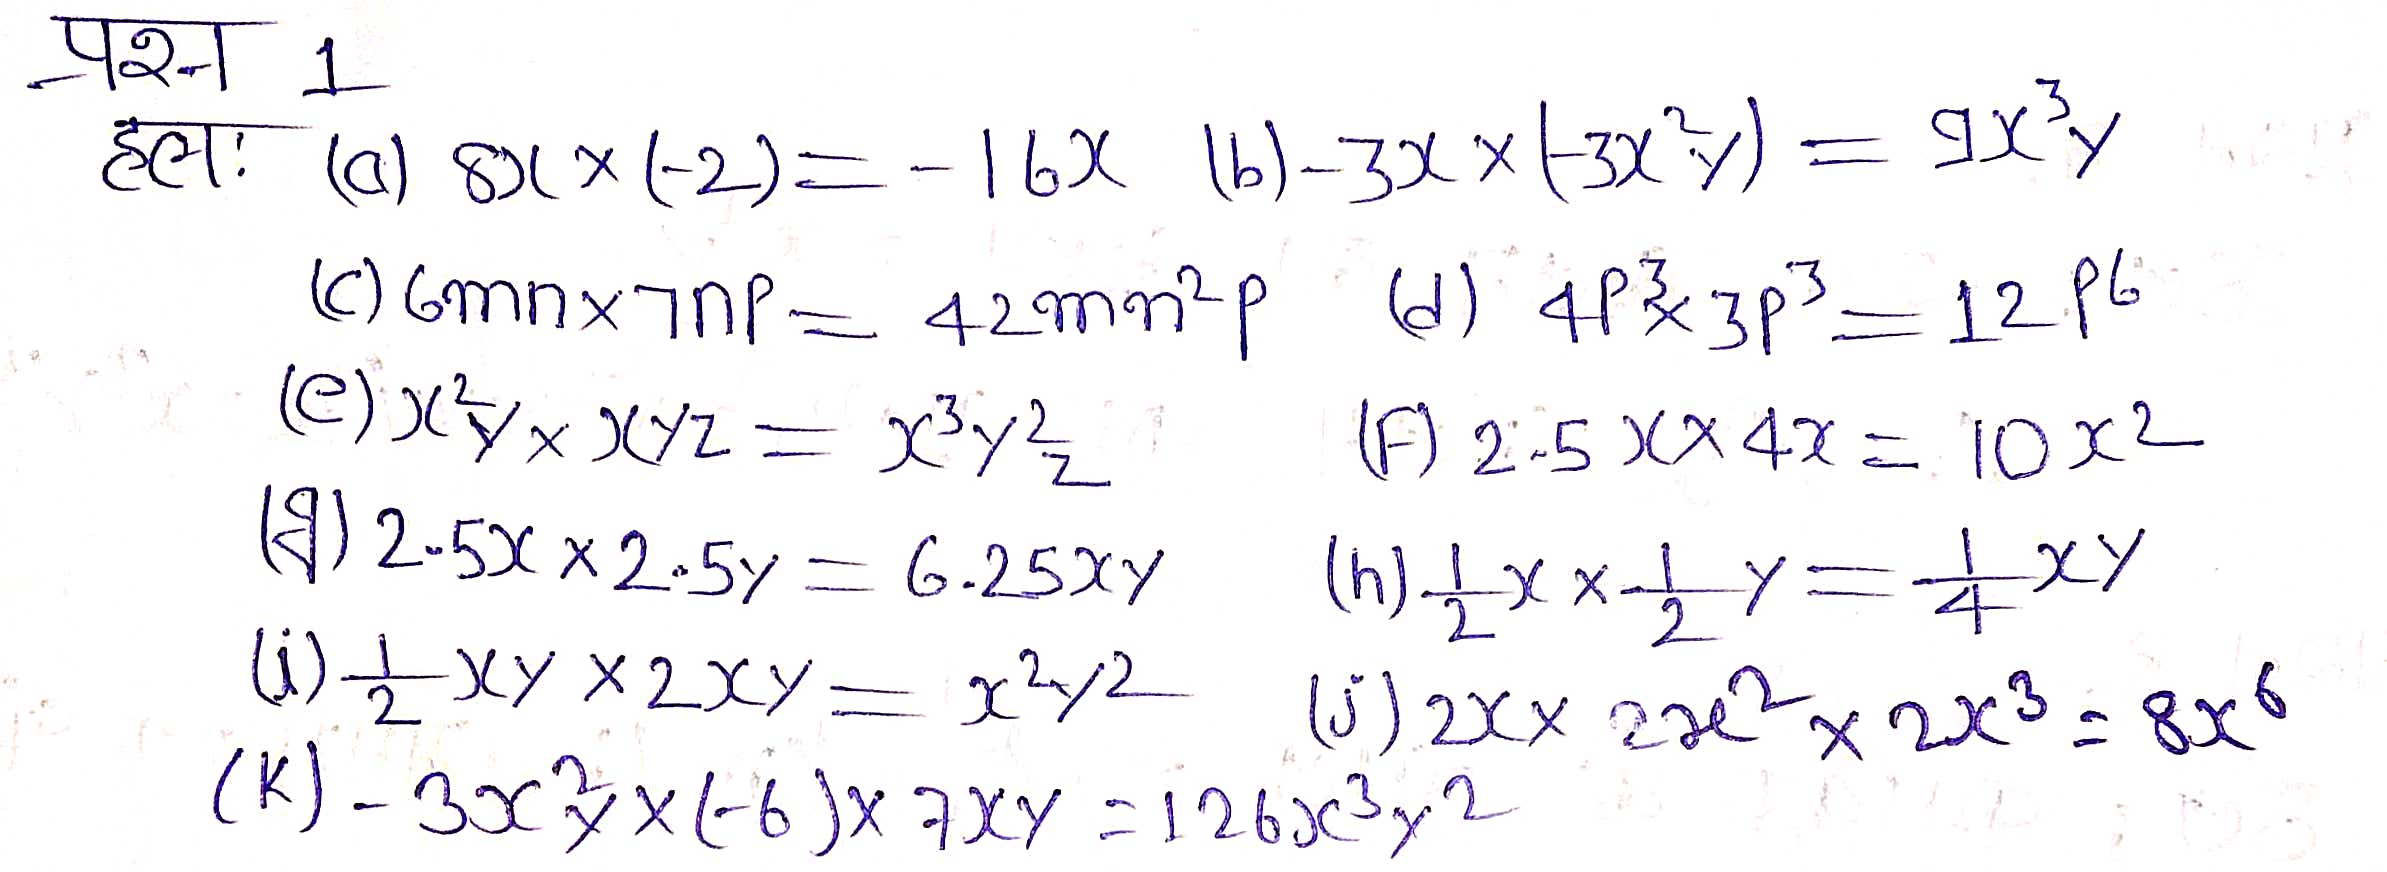 प्रश्न 1
हल: (a) 8x × (-2) = -16x (b) -3x × (-3x²y) = 9x³y
(c) 6mn × 7np = 42mn²p (d) 4p³ × 3p³ = 12p6
(e) x²y × xyz = x³y²z (F) 2.5x × 4x = 10x²
(g) 2.5x × 2.5y = 6.25xy (h) 1/2 x × 1/2 y = 1/4 xy
(i) 1/2 xy × 2xy = x²y² (j) 2x × 2x² × 2x³ = 8x⁶
(K) -3x²y × (-6) × 7xy = 126x³y²